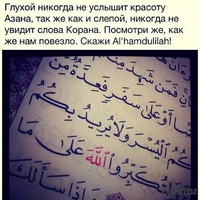 Глухой никогда не услышит красоту
Азана, так же как и слепой, никогда не
увидит слова Корана. Посмотри же, как
же нам повезло. Скажи Al'hamdulilah!
فَمَن شَهِدَ
أَوْ عَلَىٰ سَفَرٍ فَعِدَّةٌ مِّنْ
ٱلْيُسْرَ وَلَا يُرِيدُ بِكُمُ
ٱللَّهَ عَلَىٰ مَا
وَإِذَا سَأَلَكَ